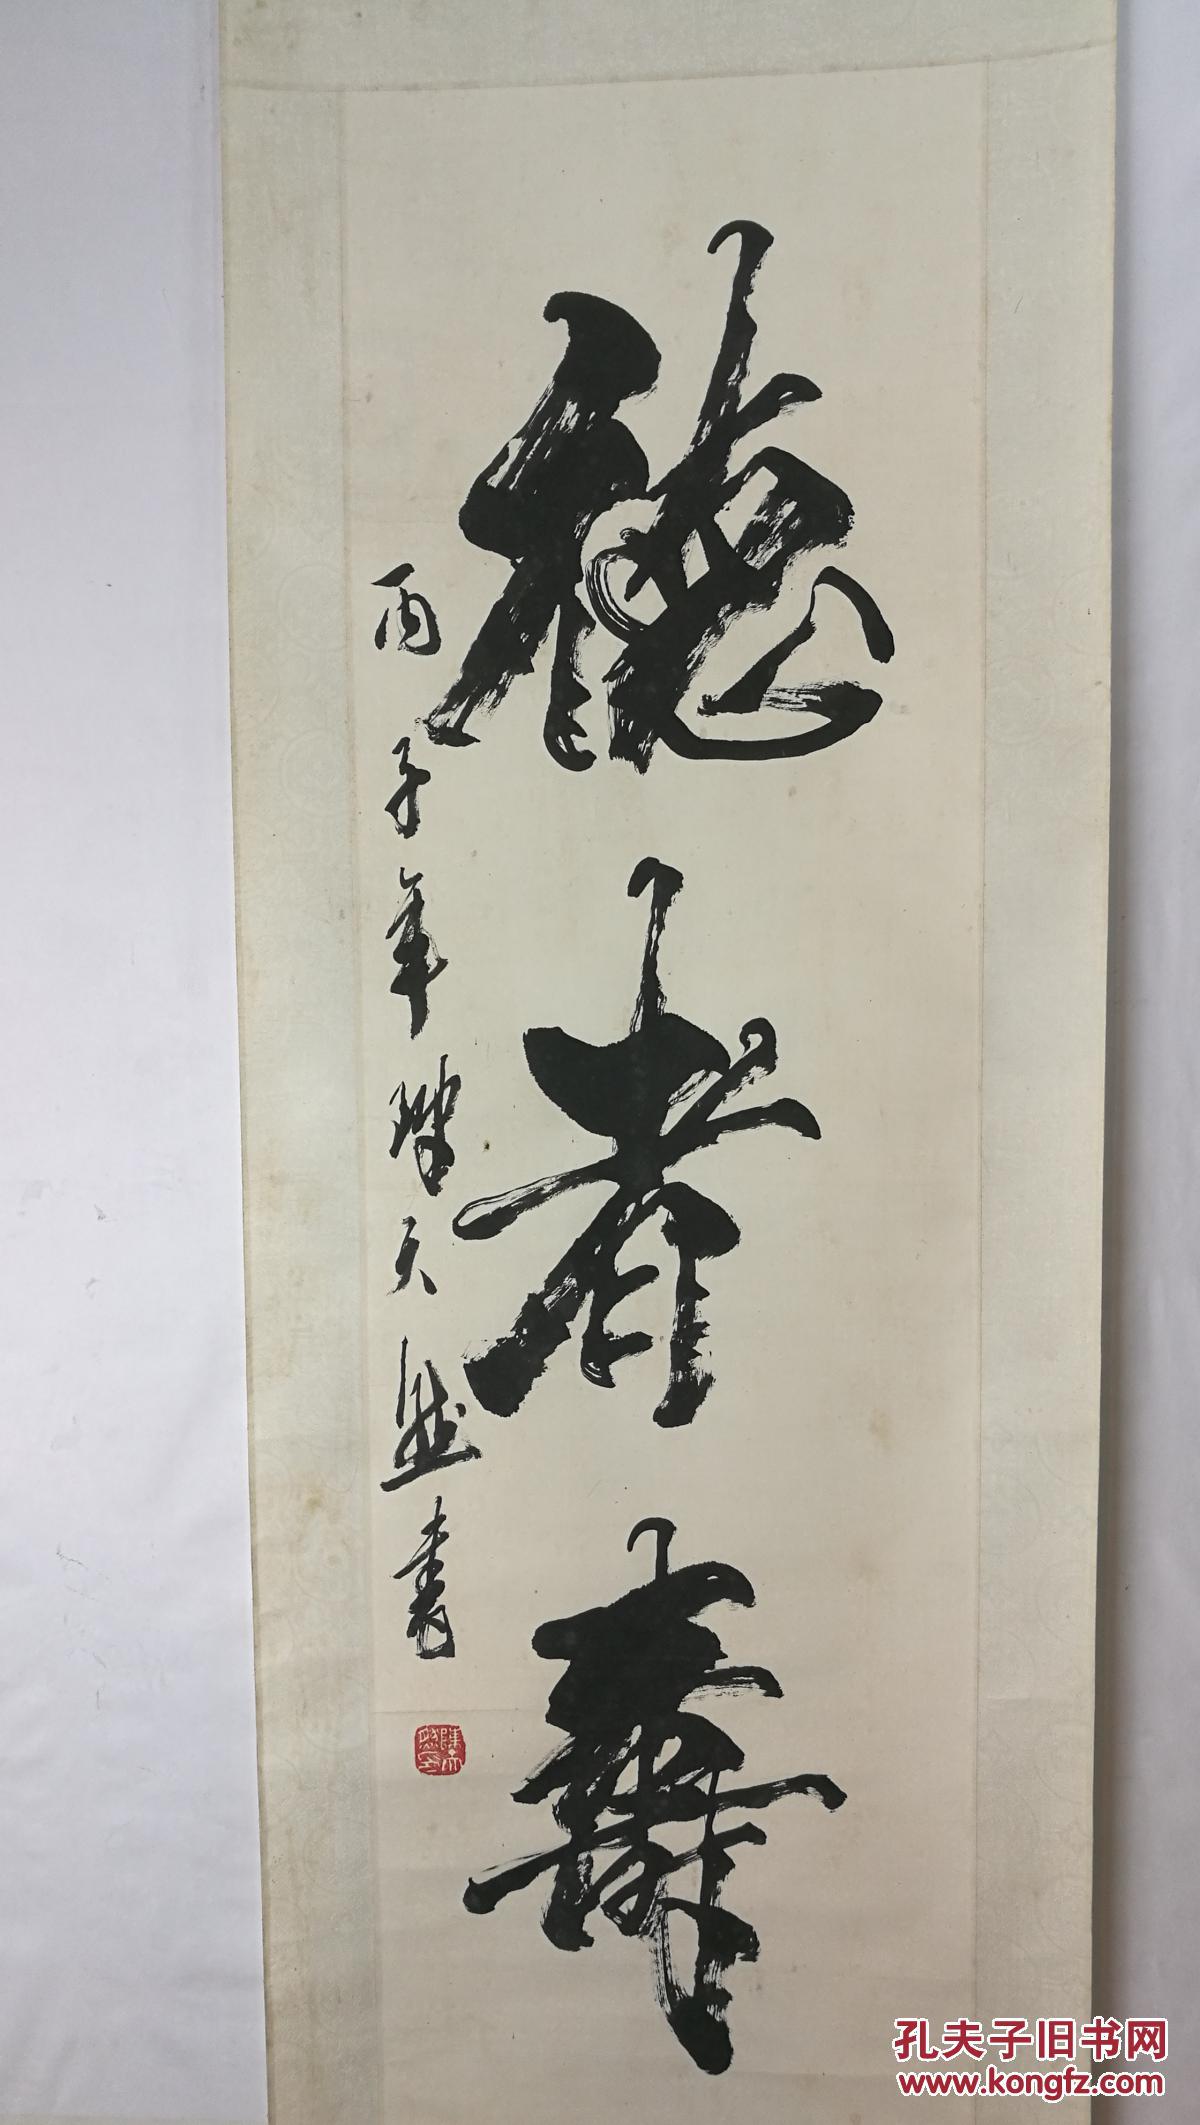 德者寿
丙子年陈天然书
陳天然印
孔夫子旧书网
www.kongfz.com